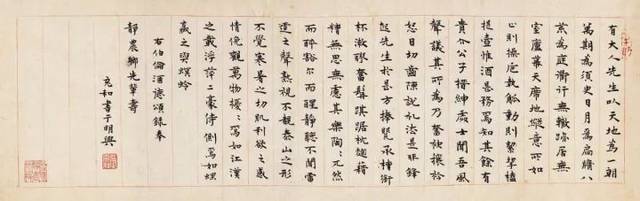 有大人先生以天地為一朝
萬期為須臾日月為扃牖八
荒為庭衢行無轍跡居無
室廬幕天席地縱意所如
止則操卮執觚動則挈榼
提壺唯酒是務焉知其餘有
貴介公子搢紳處士聞吾風
聲議其所為乃奮袂攘衿
怒目切齒陳說禮法是非鋒
起先生於是方捧甖承槽銜
杯漱醪奮髯踑踞枕麴藉
糟無思無慮其樂陶〻兀然
而醉豁爾而醒靜聽不聞雷
霆之聲熟視不覩泰山之形
不覺寒暑之切肌利欲之感
情俯觀萬物擾〻焉如江漢
之載浮萍二豪侍側焉如蜾
蠃之與螟蛉
右伯倫酒德頌錄奉
靜農鄉先輩壽
充和書于明興